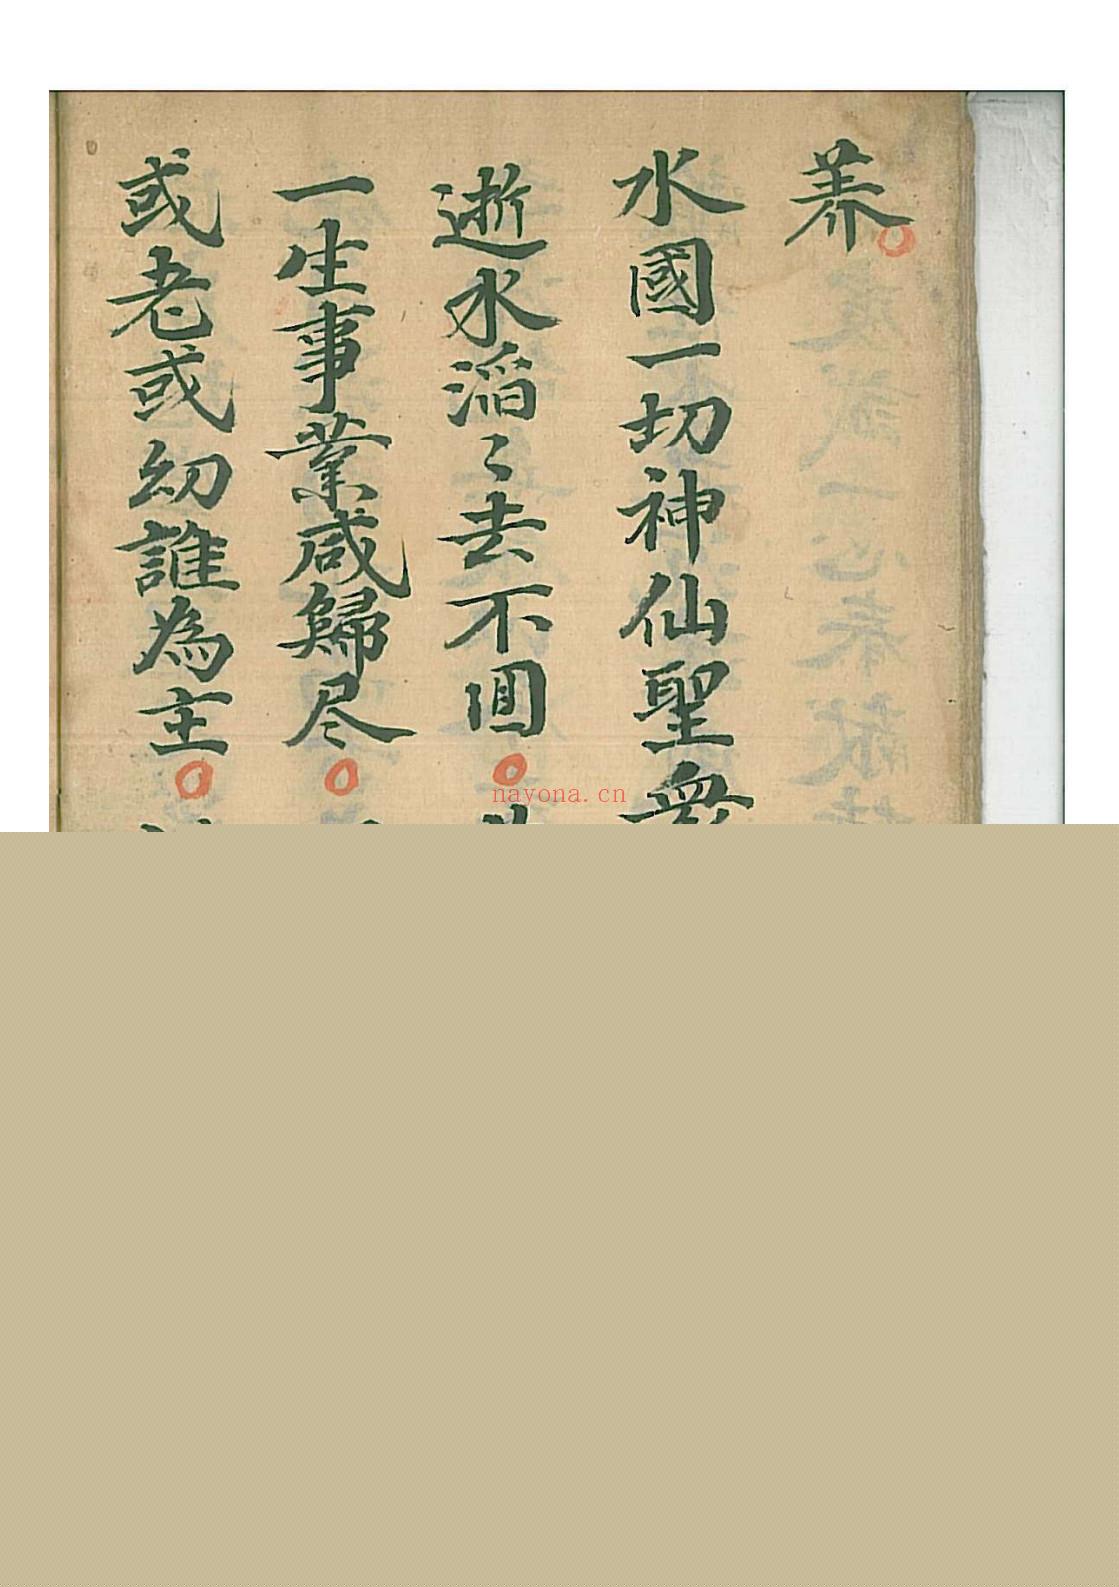 养
水國一切神仙聖衆
逝水滔〻去不囬
一生事業咸歸尽
或老或幼誰為主
nayona.cn